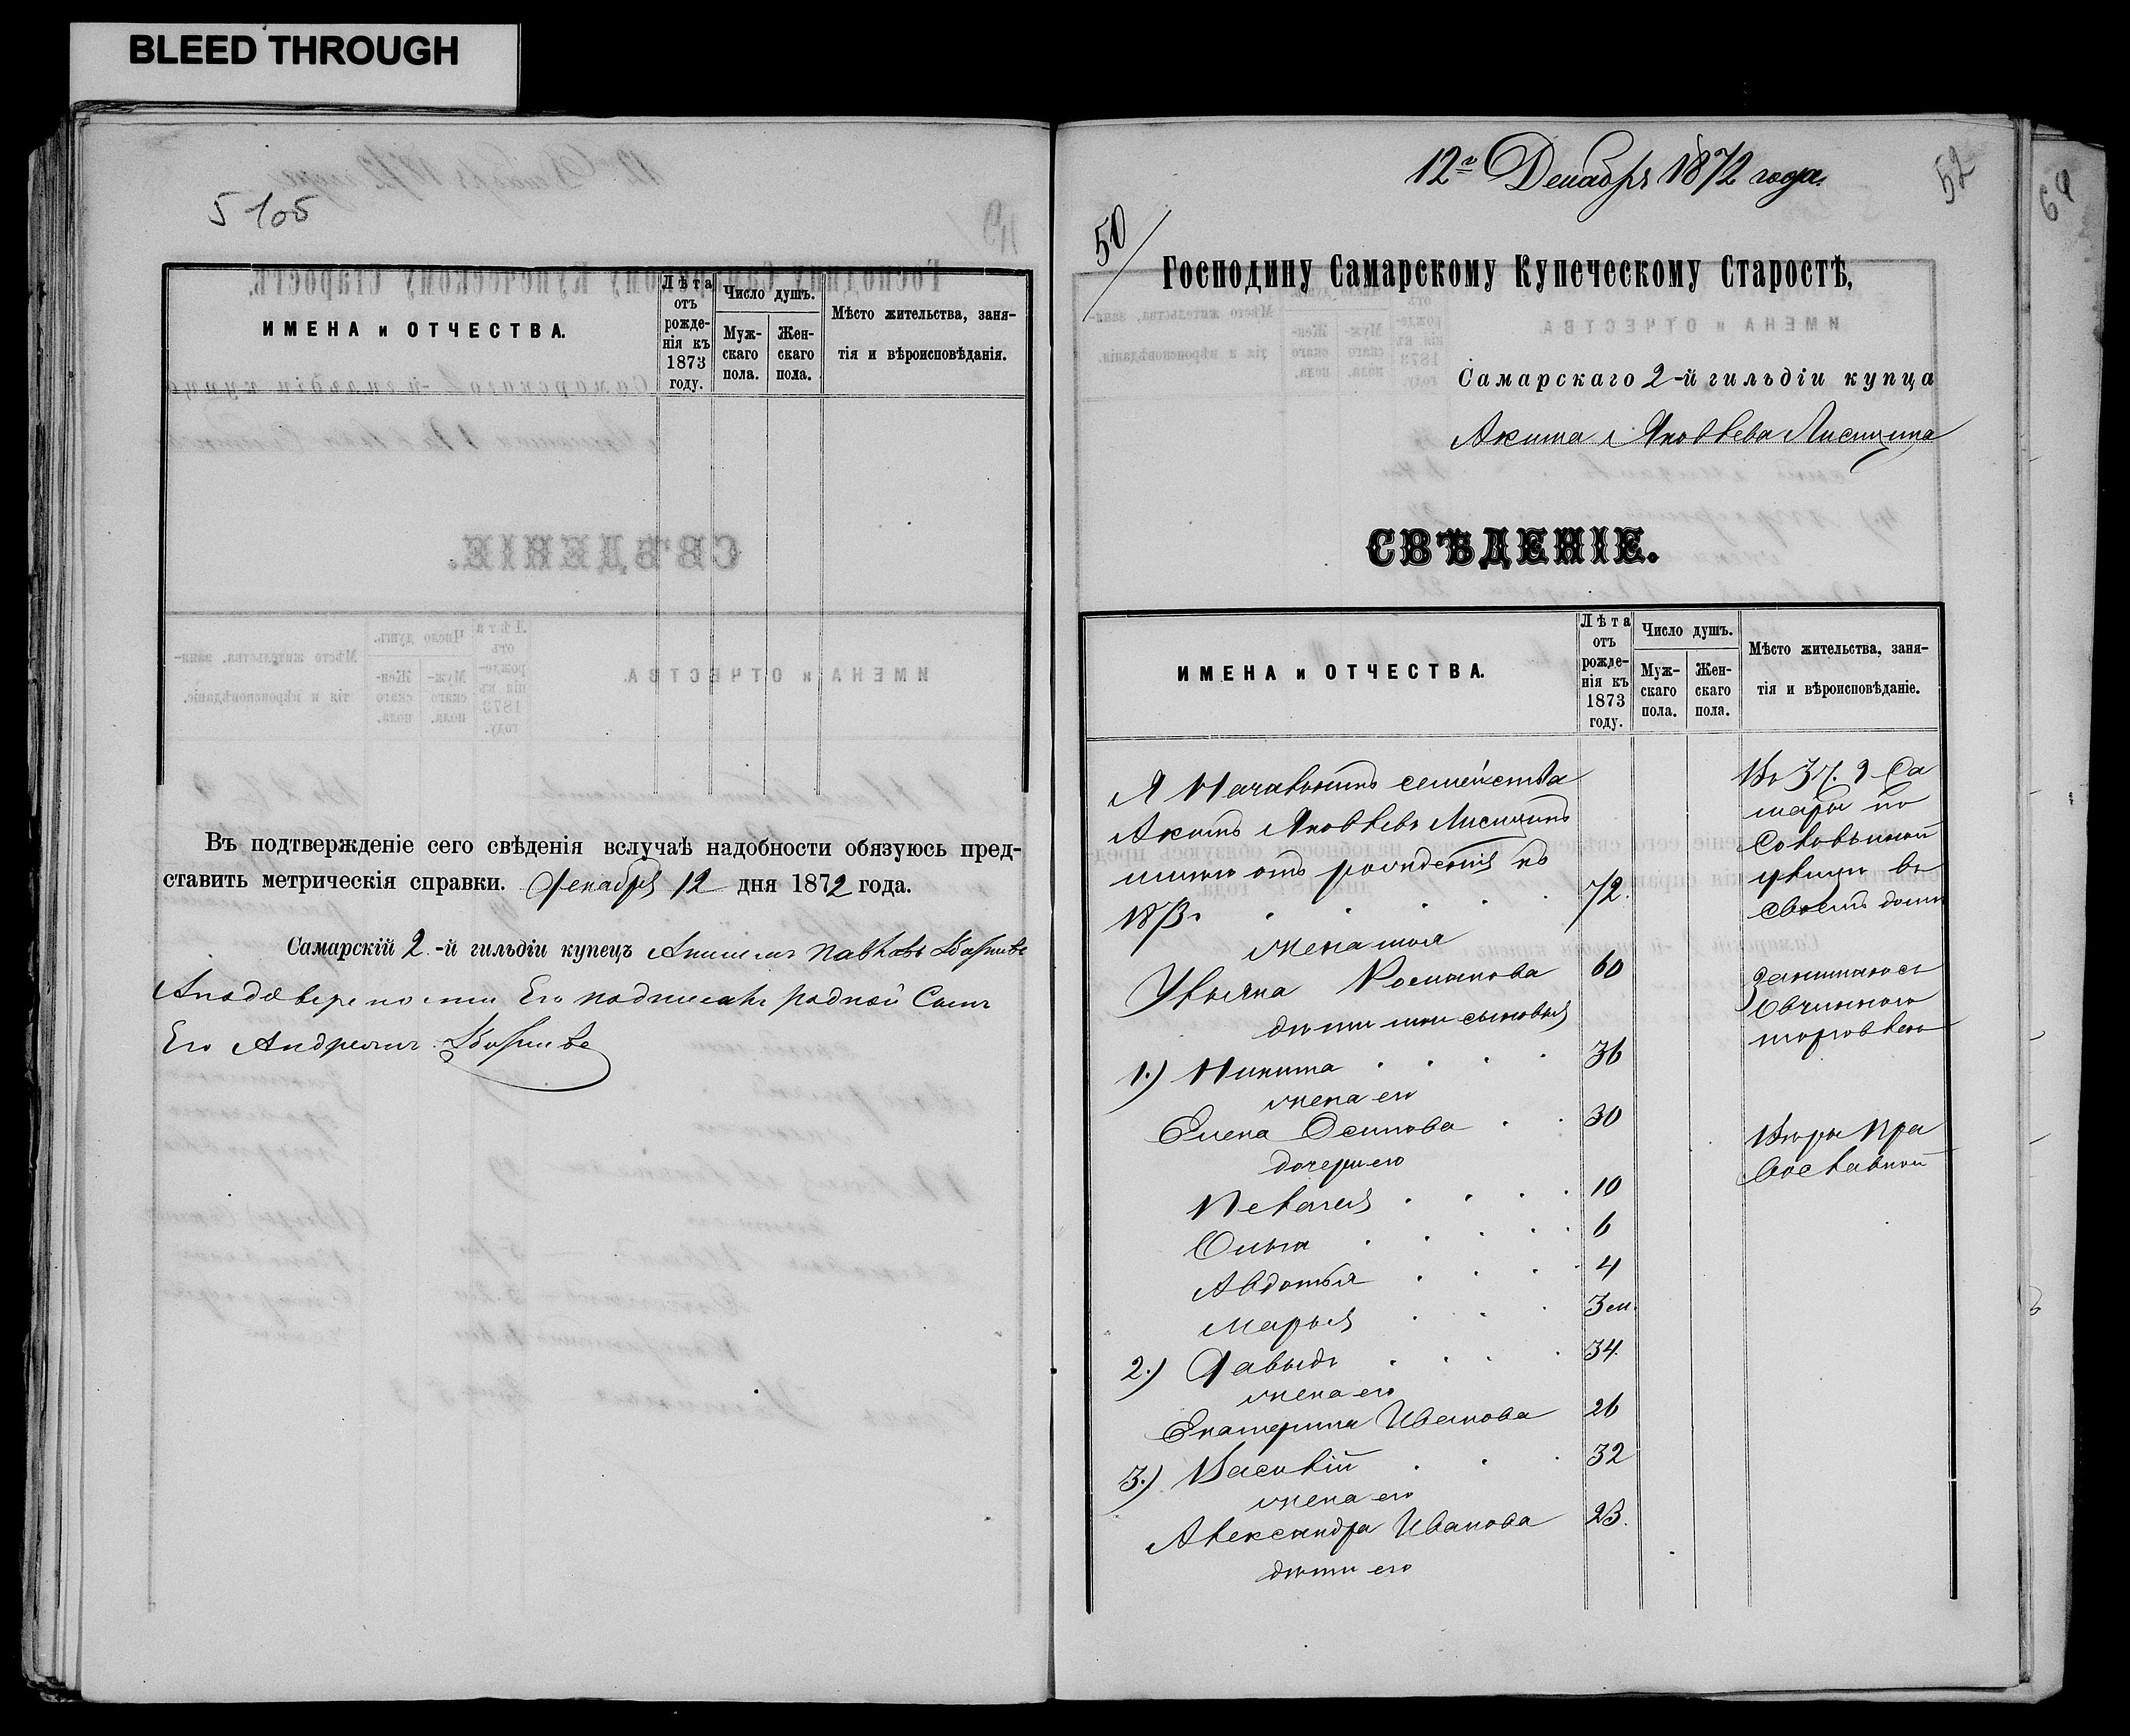 BLEED THROUGH
5 105
ИМЕНА и ОТЧЕСТВА.
Лѣта отъ рожденія къ 1873 году.
Число душъ.
Мужскаго пола.
Женскаго пола.
Мѣсто жительства, занятія и вѣроисповѣданія.
Въ подтвержденіе сего свѣденія вслучаѣ надобности обязуюсь пред-
ставить метрическія справки. Декабря 12 дня 1872 года.
Самарскій 2-й гильдіи купецъ Павловъ
Его родной Сынъ
Его Андреянъ
12го Декабря 1872 года.
52
69
50
Господину Самарскому Купеческому Старостѣ,
Самарскаго 2-й гильдіи купца
Акима Яковлева Лисицина
СВѢДЕНІЕ.
ИМЕНА и ОТЧЕСТВА.
Лѣта отъ рожденія къ 1873 году.
Число душъ.
Мужскаго пола.
Женскаго пола.
Мѣсто жительства, занятія и вѣроисповѣданіе.
Я Начальникъ семейства
Акимъ Яковлевъ Лисицинъ
отъ рожденія къ
1873 г. 72.
жена моя
Ульяна Романова 60
дѣти мои сыновья
1.) Никита 36
жена его
Елена Осипова 30
дочери его
Пелагея 10
Ольга 6
Авдотья 4
Марья 3 м.
2.) Давыдъ 34.
жена его
Екатерина Иванова 26
3.) Василій 32
жена его
Александра Иванова 23.
дѣти его
Во 3 ч. г Са
мары по
улицы въ
своемъ домѣ
Занимаюсь
торговлею
Вѣры Пра
вославной